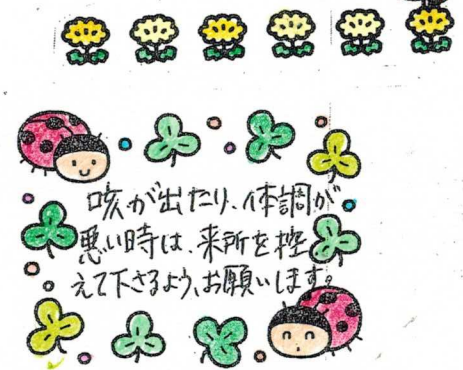 咳が出たり、体調が
悪い時は、来所を控
えて下さるよう、お願いします。